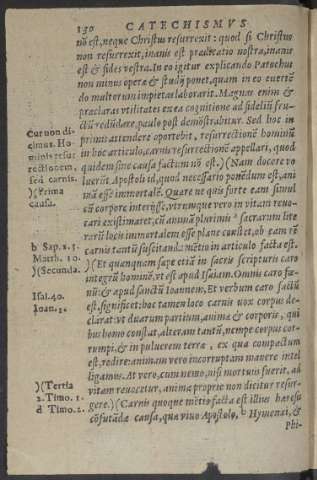 130 CATECHISMVS
nō est, neque Christus resurrexit: quod si Christus
non resurrexit, inanis est prædicatio nostra, inanis
est & fides vestra. In eo igitur explicando Parochus
non minus operæ & studij ponet, quam in eo euertē
do multorum impietas laborauit. Magnas enim &
præclaras vtilitates ex ea cognitione ad fidelium fru-
ctū redūdare, paulo post demōstrabitur. Sed hoc in
primis attendere oportebit, resurrectionē hominū
in hoc articulo, carnis resurrectionē appellari, quod
quidem sine causa factum nō est. )( Nam docere vo
luerūt Apostoli id, quod necessario ponēdum est, ani
mā esse immortalē. Quare ne quis forte eam simul
cū corpore interijsse, vtrunque vero in vitam reuo-
cari existimaret, cū animā plurimis sacrarum litte
rarū locis immortalem esse plane constet, ob eam rē
carnis tantū suscitandæ mētio in articulo facta est.
)( Et quanquam sæpe etiā in sacris scripturis caro
integrū hominē, vt est apud Isaiam. Omnis caro fœ
nū: & apud sanctū Ioannem, Et verbum caro factū
est, significet: hoc tamen loco carnis vox corpus de-
clarat: vt duarum partium, animæ & corporis, qui
bus homo constat, alteram tantū, nempe corpus cor-
rumpi, & in puluerem terræ, ex qua compactum
est, redire: animam vero incorruptam manere intel
ligamus. At vero, cum nemo, nisi mortuus fuerit, ad
vitam reuocetur, anima proprie non dicitur resur-
gere. )( Carnis quoque mētio facta est illius hæresis
cōfutādæ causa, qua viuo Apostolo, Hymenæi, &
Phi-
Cur non di-
cimus. Ho-
minis resur
rectionem,
sed carnis.
)( Prima
causa.
b Sap. 2. 3.
Matth. 10.
)( Secunda.
Isai. 40.
Ioan. 1.
)( Tertia
2. Timo. 1.
d Timo. 2.